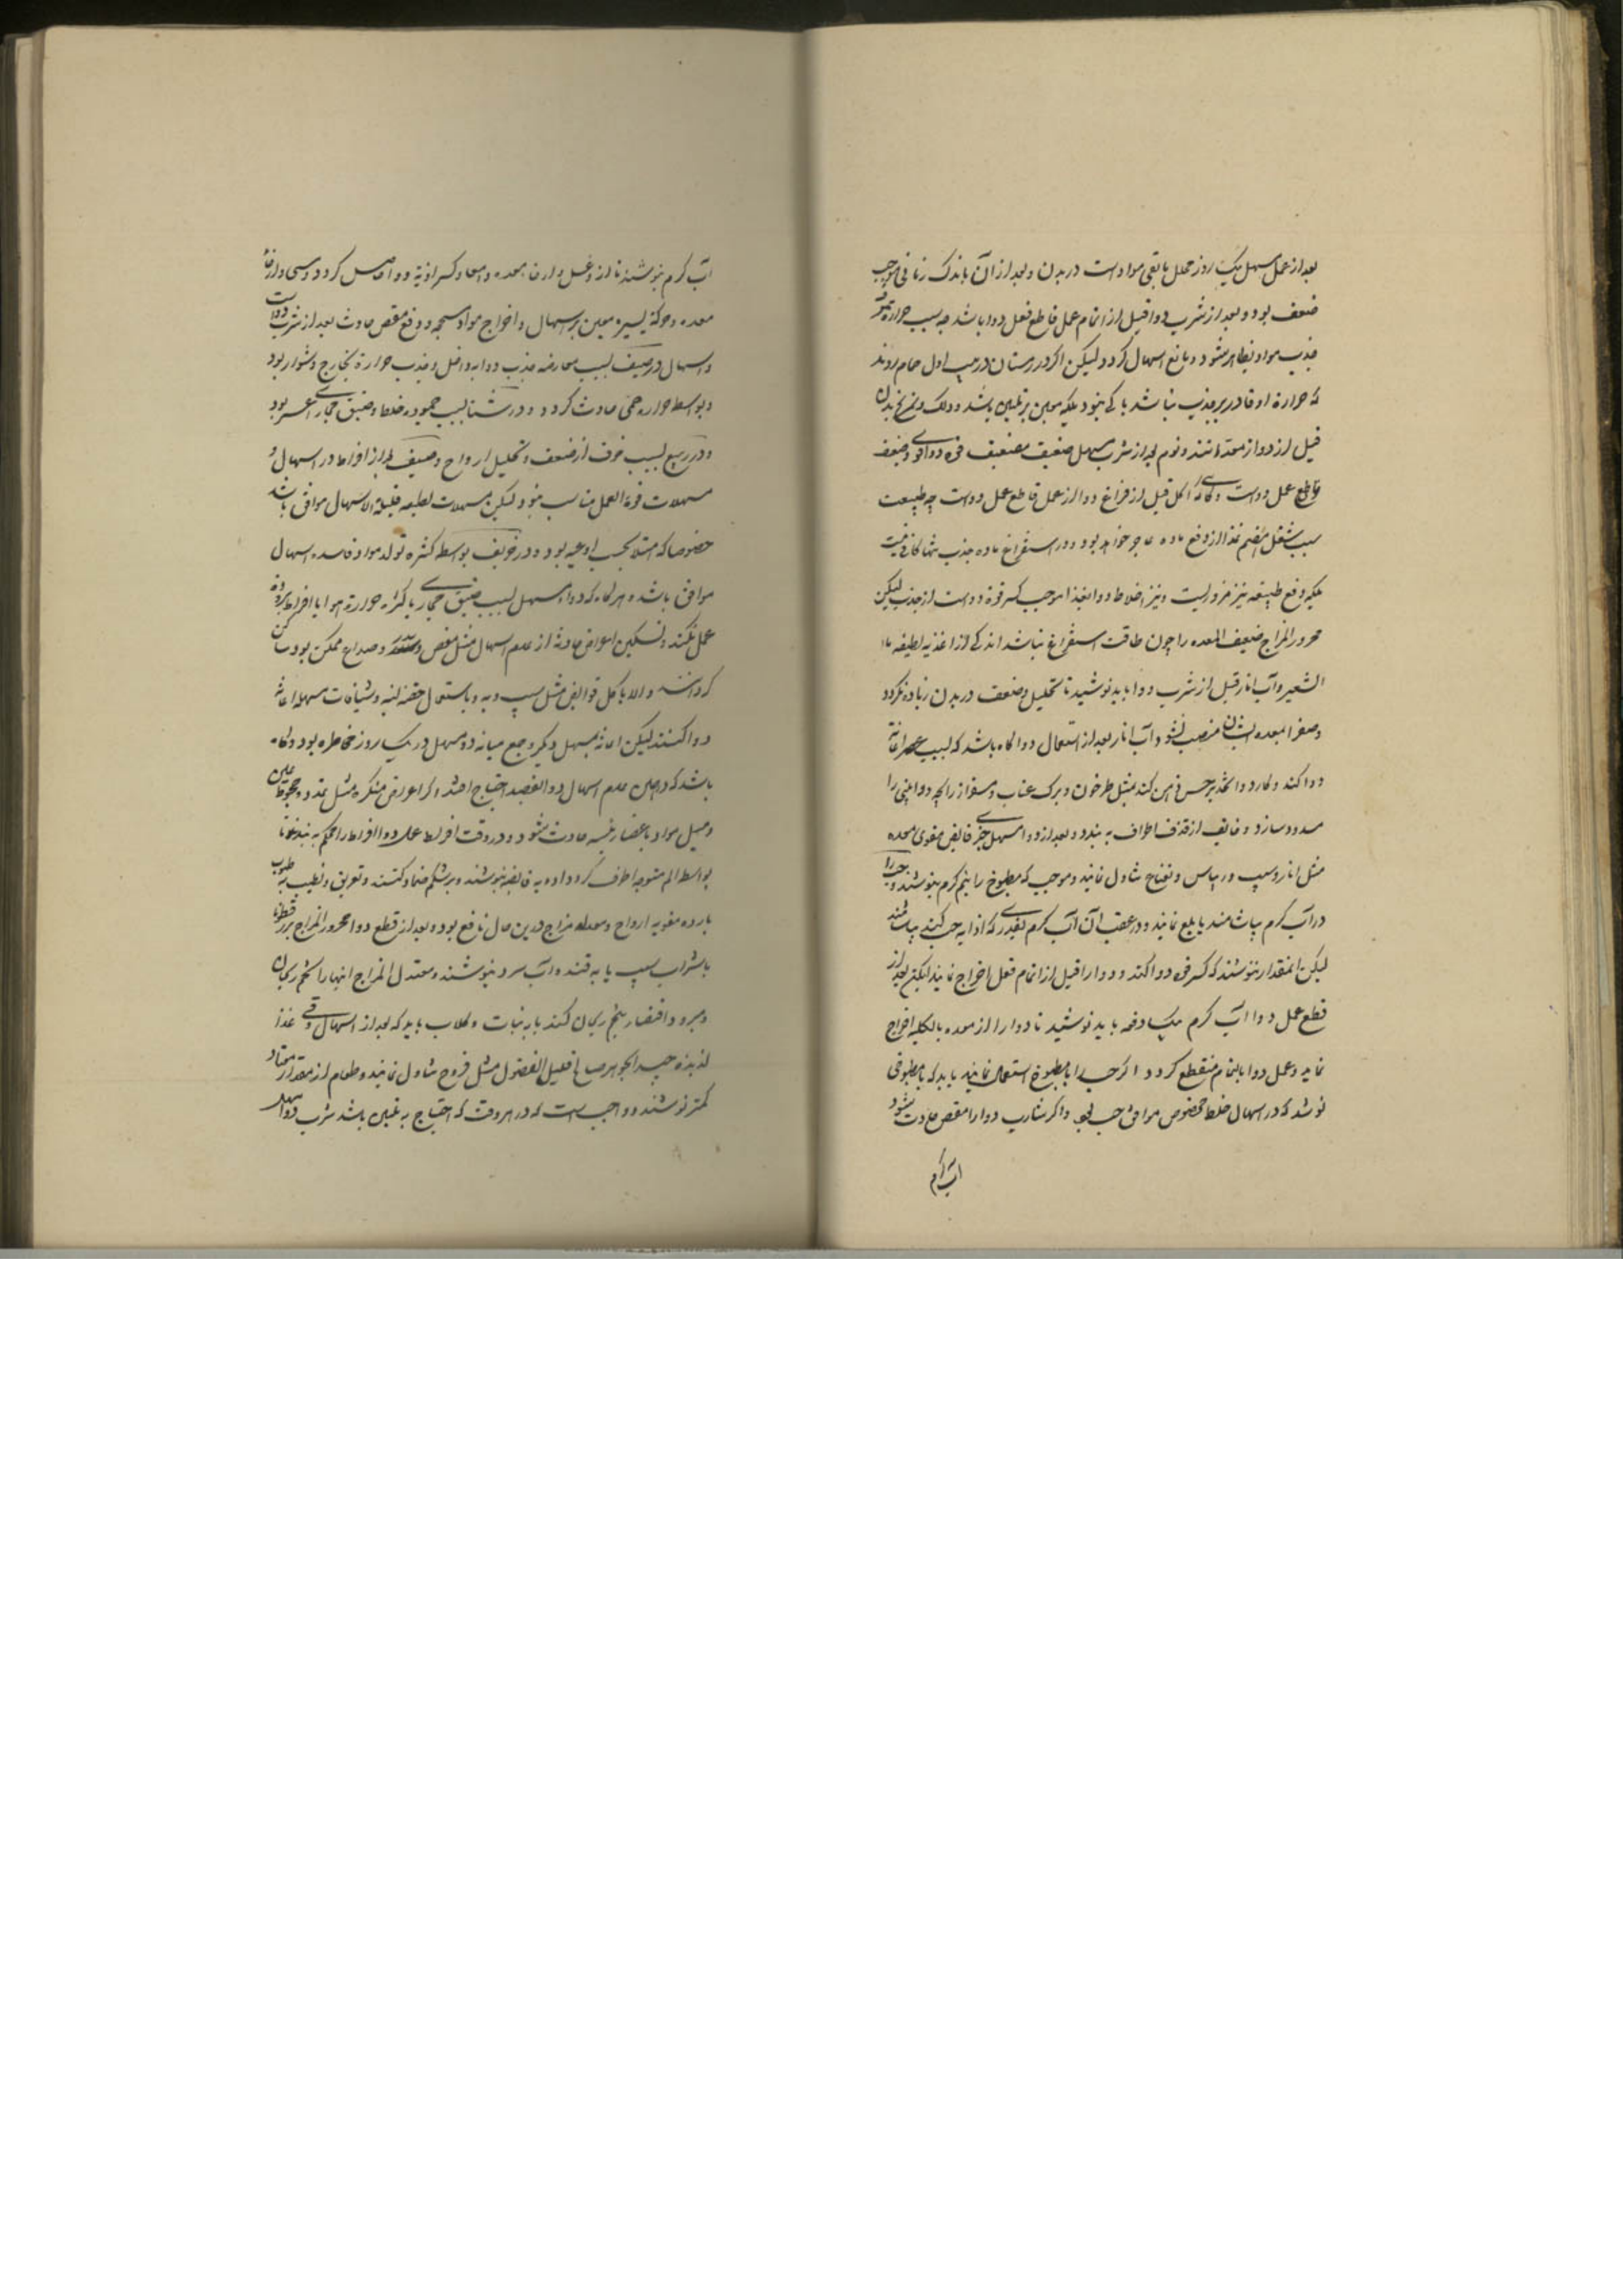 بعد از عمل مسهل یک روز محلل بابقی مواد است در بدن و بعد از آن باندک زمانی موجب
ضعف بود و بعد از شرب دوا قبل از اتمام عمل قاطع فعل دوا باشد چه بسبب حرارة
جذب مواد بظاهر میشود و مانع اسهال کردد و لیکن اکر در زمستان در بیت اول حمام روند
که حرارة او قادر بر جذب نباشد باکی نبود بلکه معین بر تلیین باشد و دلک و تمریخ بدن
قبل از دوا از معدات اند و نوم بعد از شرب مسهل ضعیف مضعف قوة دوا و ضعف
قاطع عمل دواست و اکل قبل از فراغ دوا از عمل قاطع عمل دواست چه طبیعت
بسبب شغل بهضم غذا از دفع ماده عاجز خواهد بود و در استفراغ ماده جذب تنها کافی نیست
بلکه دفع طبیعة نیز ضروریست و نیز اختلاط دوا بغذا موجب کسر قوة دواست از جذب لیکن
محرور المزاج ضعیف المعده را چون طاقت استفراغ نباشد اندکی از اغذیه لطیفه ماء
الشعیر و آب انار قبل از شرب دوا باید نوشید تا تحلیل و ضعف در بدن زیاده نکردد
و صفرا بمعده ایشان منصب نشود و آب انار بعد از استعمال دوا کاه باشد که بسبب عصر اعانة
دوا کند و کاره دوا تخدیر حس فم کند بمثل طرخون و برک عناب و منفذ از رایحه دوا بینی را
مسدود سازد و خایف از قذف اطراف به بندد و بعد از دوا مسهل چیزی قابض مقوی معده
مثل انار و سیب و ریباس و نعناع تناول نمایند و موجب که مطبوخ را نیم کرم بنوشند و حب را
در آب کرم بیاشامند یا بلع نمایند و در عقب آن آب کرم بقدری که اذابه حب کند بیاشامند
لیکن انمقدار ننوشند که کسر قوة دوا کند و دوا را قبل از اتمام فعل اخراج نماید لیکن بعد از
قطع عمل دوا آب کرم یکدفعه باید نوشید تا دوا را از معده بالکلیه اخراج
نماید و عمل دوا بالتمام منقطع کردد اکر حب را با مطبوخ استعمال نمایند باید که با مطبوخی
نوشد که در اسهال خلط مخصوص موافق حب بود و اکر شارب دوا را مغص حادث شود
آب کرم
آب کرم بنوشند تا از و غسل و ارخاء معده و امعا و کسر اذیة دوا حاصل کردد و مشی و ارخاء
معده و حرکة یسیره معین بر اسهال و اخراج مواد سحجه و دفع مغص حادث بعد از شرب دواست
و اسهال در صیف بسبب معارضه جذب دوا بداخل و جذب حرارة بخارج دشوار بود
و بواسطه حراره حمی حادث کردد و در شتا بسبب جمود خلط و ضیق مجاری اعسر بود
و در ربیع بسبب خوف از ضعف و تحلیل ارواح و صیف از افراط در اسهال و
مسهلات قویة العمل مناسب نبود و لیکن مسهلات لطیفه قلیلة الاسهال موافق باشد
خصوصا که امتلا بحسب اوعیه بود و در خریف بواسطه کثرة تولد مواد فاسده اسهال
موافق باشد و هرکاه که دواء مسهل بسبب ضیق مجاری یا کثرة حرارة هوا یا افراط برودة
عمل نکند و تسکین اعراض حادثه از عدم اسهال مثل مغص و صداع ممکن بود ساکن
کردانند و الا باکل قوابض مثل سیب و به و باستعمال حقنه لینه و شیافات مسهله اعانة
دوا کنند لیکن اعانة بمسهل دیکر و جمع میانه دو مسهل در یک روز مخاطره بود و کاه
باشد که در حین عدم اسهال دوا بفصد احتیاج افتد اکر اعراض منکره مثل تمدد و جحوظ عین
و میل مواد باعضاء رئیسه حادث شود و در وقت افراط عمل دوا اطراف را محکم به بندند تا
بواسطه الم متوجه اطراف کردد ادویه قابضه بنوشند و بر شکم ضماد کنند و تعریق و تطیب به طیوب
بارده مقویه ارواح و معدله مزاج درین حال نافع بود و بعد از قطع دوا محرور المزاج بزر قطونا
با شراب سیب یا به قند و آب سرد بنوشند و معتدل المزاج اینها را تخم ریحان
و مبرود اقتصار بتخم ریحان کند با نبات و کلاب باید که بعد از اسهال و قی غذا
لذیذه جید الجوهر صالح قلیل الفضول مثل فروج تناول نمایند و طعام از مقدار معتاد
کمتر نوشند و واجب است که در هر وقت که احتیاج به تلیین باشد شرب دواء مسهل